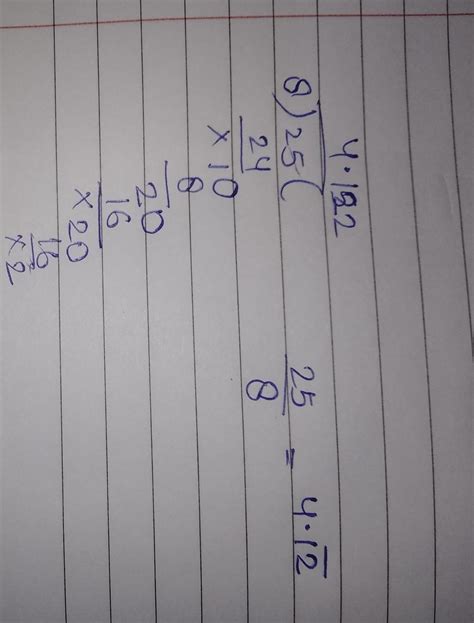 4.122
8)25(
24
×10
8
20
16
×20
16
×2
25/8 = 4.12